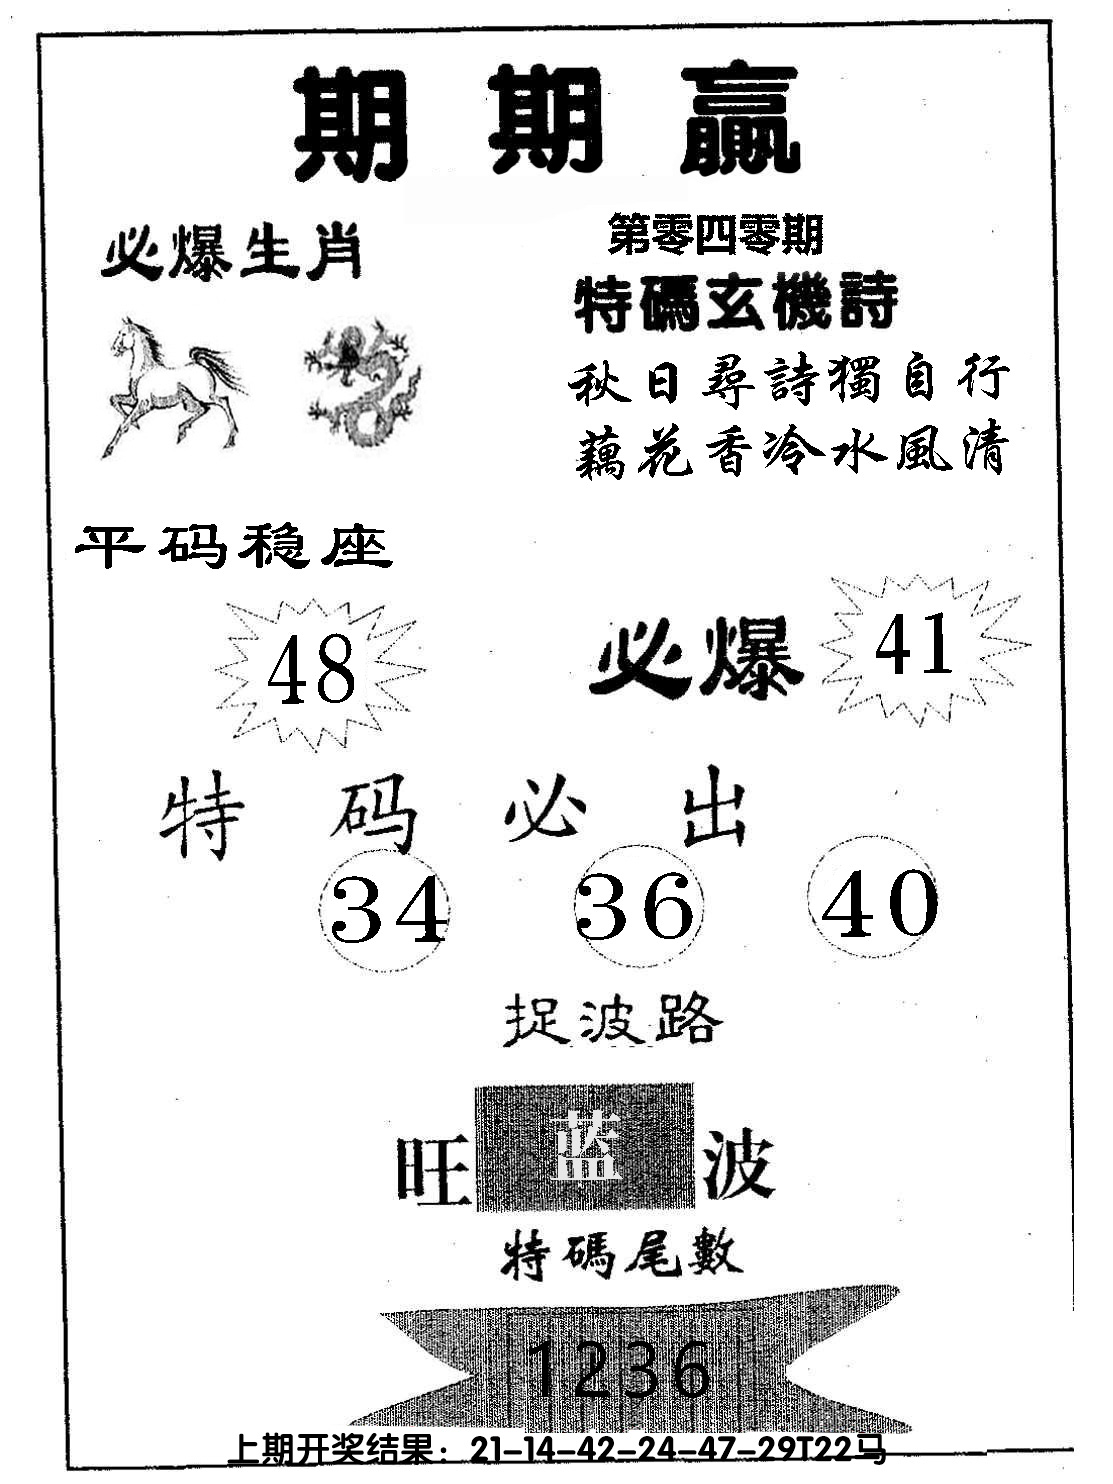 期期赢
必爆生肖
第零四零期
特碼玄機詩
秋日尋詩獨自行
藕花香冷水風清
平码稳座
48
必爆 41
特码必出
34 36 40
捉波路
旺 蓝 波
特碼尾數
1236
上期开奖结果：21-14-42-24-47-29T22马